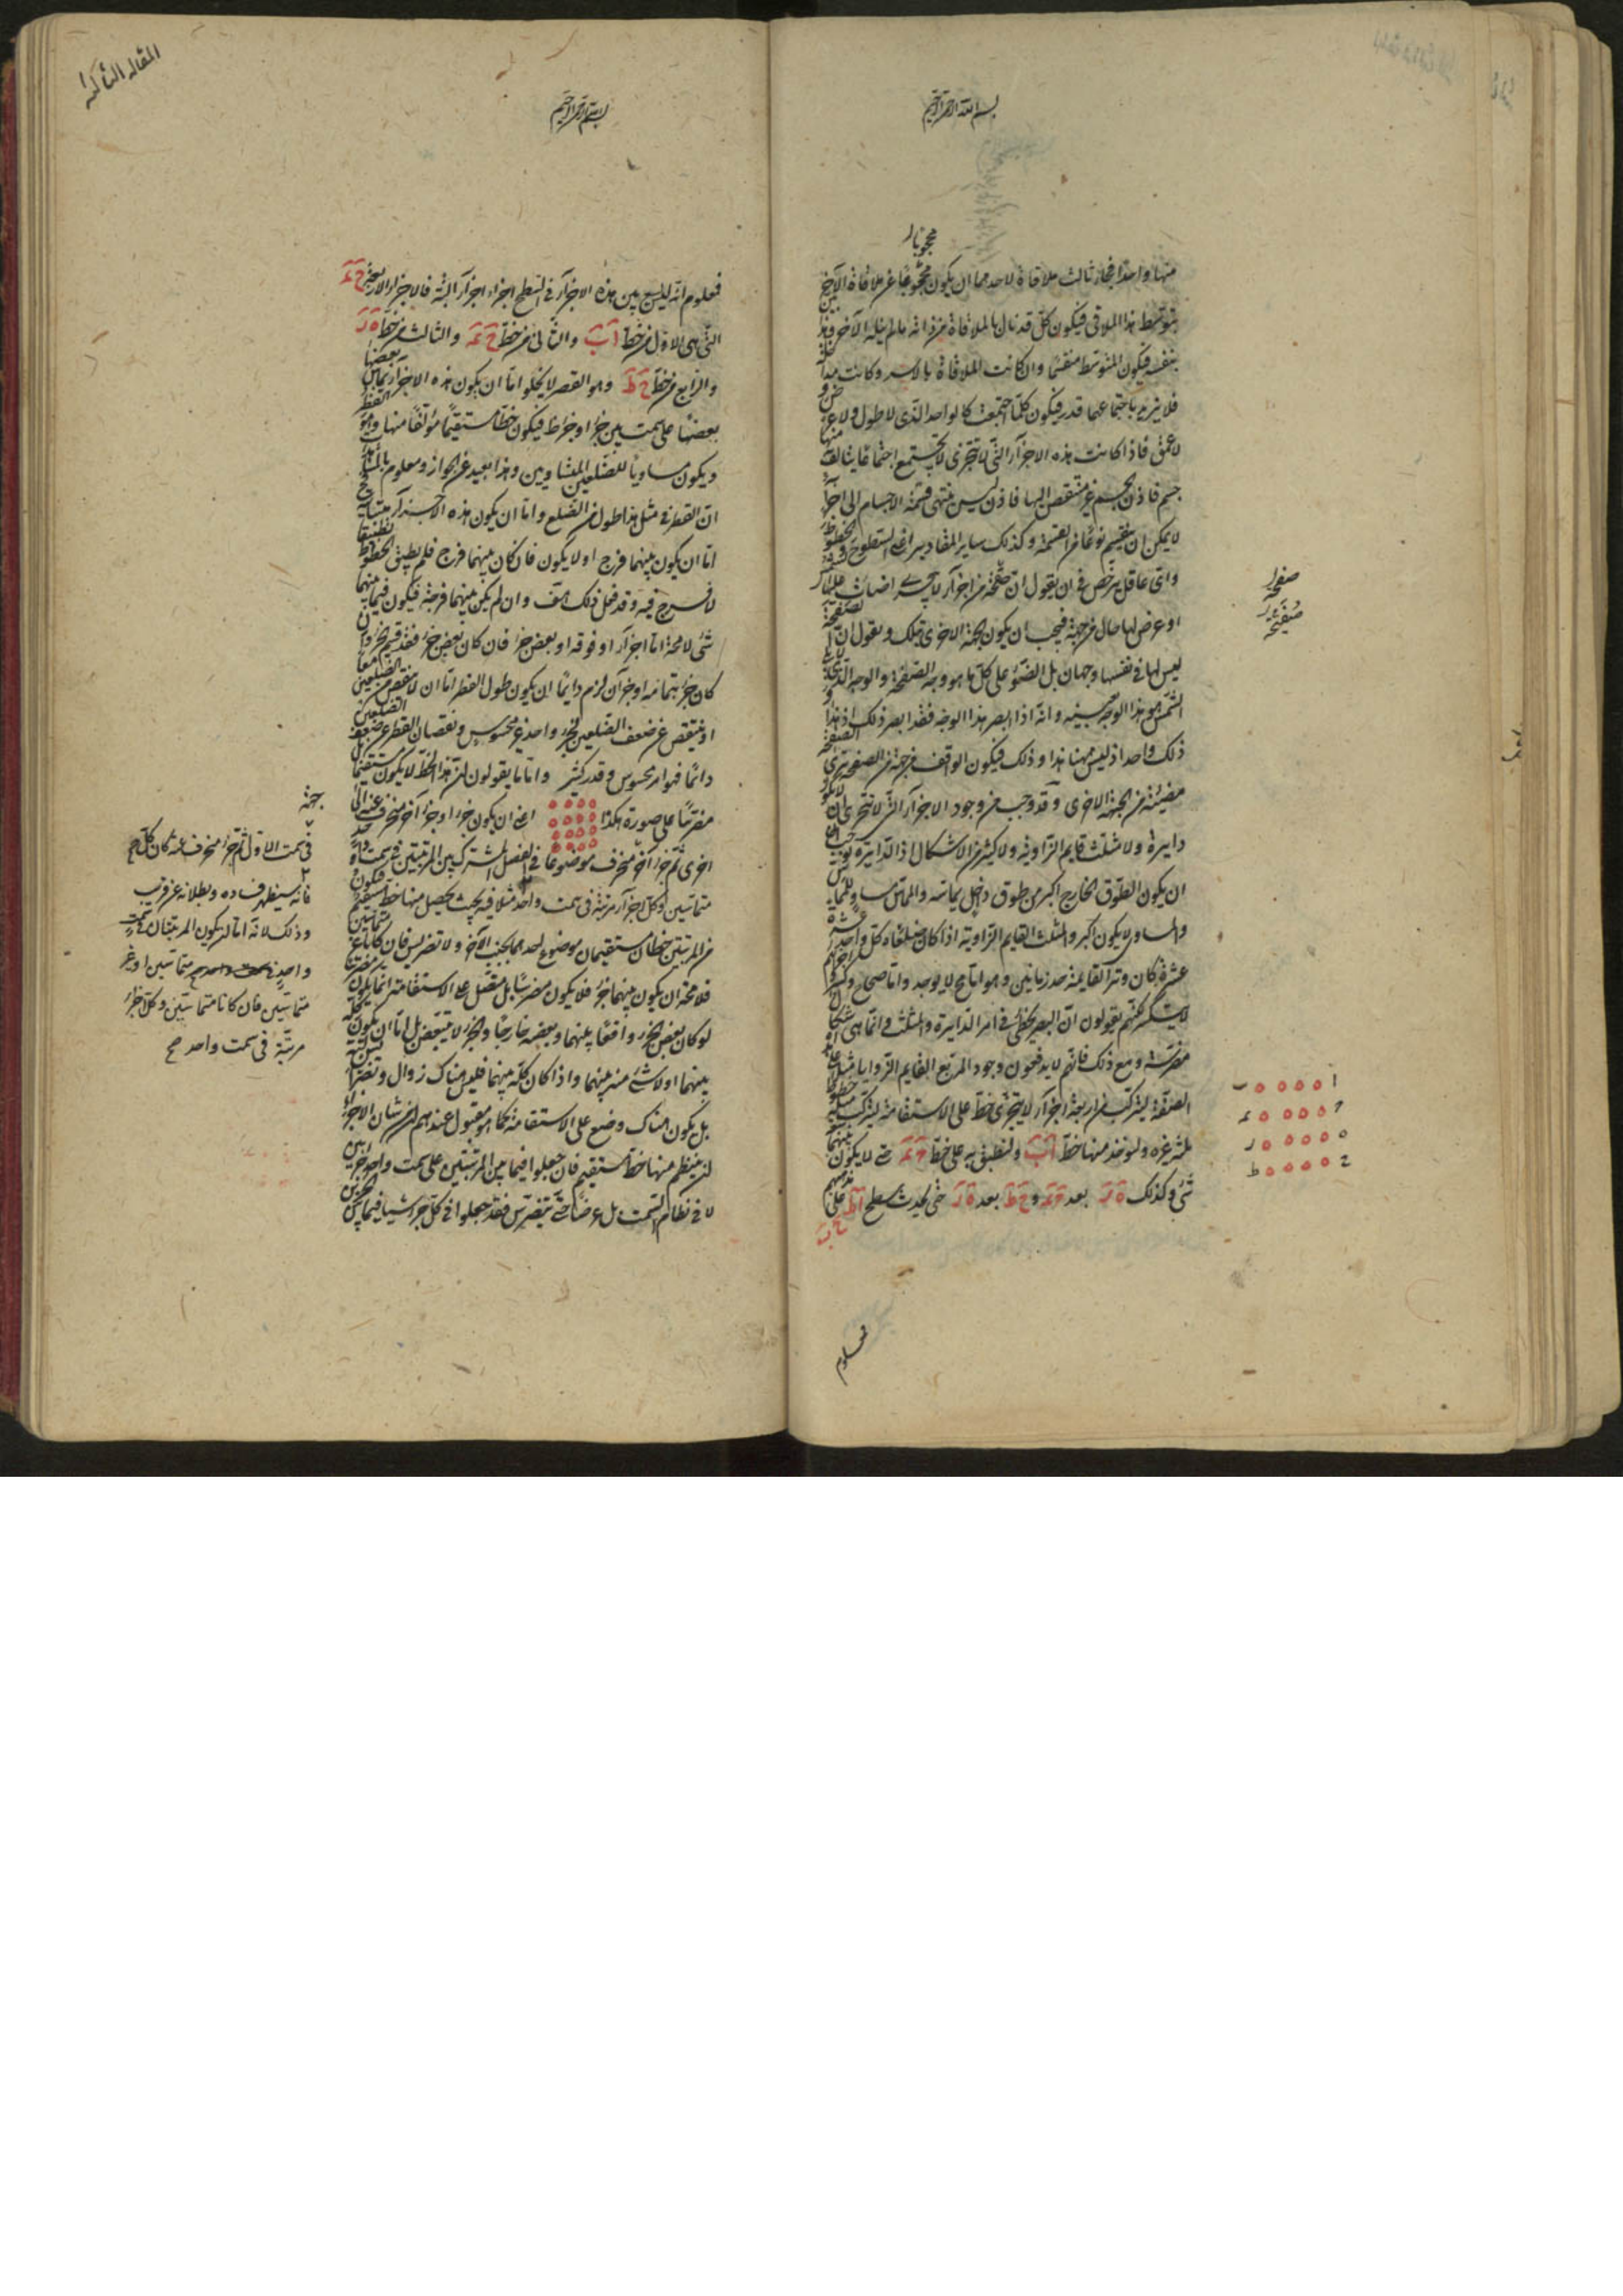 بسم الله الرحمن الرحيم
محجوبا
منها واحدا فجاز ثالث ملاقاة لاحدهما ان يكون محجوبا عن ملاقاة الآخر
بتوسط هذا الملاقى فيكون كل قد نال بالملاقاة من ذاته ما لم ينله الآخر وهذا بين
بنفسه فيكون المتوسط منقسما وان كانت الملاقاة بالاسر وكانت مداخلة
فلا يزيد باجتماعها قدر فيكون كلما اجتمعت كالواحد الذى لا طول ولا عرض و
لا عمق فاذا كانت هذه الاجزاء التى لا تتجزى لا تجتمع اجتماعا يتألف منها
جسم فاذن الجسم غير منتقض اليها فاذن ليس ينتهى قسمة الاجسام الى اجزاء
لا يمكن ان ينقسم نوعا من القسمة وكذلك ساير المقادير اعنى السطوح والخطوط
واى عاقل يرخص فى ان يقول ان صفحة من اجزاء لا تتجزى اضائت عليها
او عرض لها حال من جهة فيجب ان يكون الجهة الاخرى بتلك ويقول ان الصفحة
ليس لها فى نفسها وجهان بل الضوء على كل ما هو وجه الصفحة والوجه الذى لا يلى
الشمس هو هذا الوجه بعينه وانه اذا ابصر هذا الوجه فقد ابصر ذلك اذ هذا و
ذلك واحد اذ ليس ههنا هذا وذلك فيكون الواقف من جهة من الصفحة يرى الصفحة
مضيئة من الجهة الاخرى وقد وجب من وجود الاجزاء التى لا تتجزى ان لا يكون
دايرة ولا مثلث قايم الزاوية ولا كثير من الاشكال اذ الدايرة توجب
ان يكون الطوق الخارج اكبر من طوق داخل يماسه والمماس مساو للمماس
والمساوى لا يكون اكبر والمثلث القايم الزاوية اذا كان ضلعاه كل واحد عشرة
عشرة كان وتر القايمة جذر مايتين وهو اما مح لا يوجد واما صحاح وكسر
لا ينكسر لكنهم يقولون ان البصر يخطئ فى امر الدايرة والمثلث وانما هى اشكال
مضرسة ومع ذلك فانهم لا يدفعون وجود المربع القايم الزوايا مثلا على هذه
الصفة ليتركب من اربعة اجزاء لا يتجزى خط على الاستقامة ليتركب خطوط
ثلثة غيره ولنوخذ منها خط اب ولنطبق به على خط ح ى حتى لا يكون بينهما
شى وكذلك ه ر بعد ح ى و ح ط بعد ه ر حتى يحدث سطح اط على
صفحة
صفيحة
ا ٥٥٥٥ ب
ه ٥٥٥٥ ر
ح ٥٥٥٥ ط
معلوم
المقاله الثالثه
بسم الله الرحمن الرحيم
فمعلوم انه ليس بين هذه الاجزاء فى السطح اجزاء البتة فالاجزاء الاربعة
التى هى الاول من خط اب والثانى من خط ح ى والثالث من خط ه ر
والرابع من خط ح ط وهو القطر لا يخلو اما ان يكون هذه الاجزاء يماس بعضها
بعضا على سمت بين جزء ا وجزء ط فيكون خطا مستقيما مؤلفا منها وهو القطر
ويكون مساويا للضلعين المتساويين وهذا بعيد عن الجواز ومعلوم بالمشاهدة
ان القطر فى مثل هذا اطول من الضلع واما ان يكون هذه الاجزاء متباينة ح
اما ان يكون بينهما فرج او لا يكون فان كان بينهما فرج فلم يطبق الخطوط تطبيقا
لا فرج فيه وقد فعل ذلك هف وان لم يكن بينهما فرجة فيكون فيما بينهما
شى لا محة اما جزء او فوقه او بعض جزء فان كان بعض جزء فقد انقسم الجزء وان
كان جزء بتمامه او جزآن لزم دايما ان يكون طول القطر اما ان لا ينقص من الضلعين معا
او ينتقص عن ضعف الضلعين لجزء واحد غير محسوس ونقصان القطر عن ضعف الضلعين
دائما فهو امر محسوس وقدر كثير واما ما يقولون ان هذا الخط لا يكون مستقيما بل
مضرسا على صورة هكذا اعنى ان يكون جزء وجزء آخر منحرف عنه الى
اخرى ثم جزء آخر منحرف موضوعا فى الفصل المشترك بين المرتبتين
متماسين وكل اجزاء مرتبة فى سمت واحد مثلا فيه بحيث يحصل منها خط مستقيم فيكون
من المرتبتين خطان مستقيمان موضوع احدهما بجنب الآخر ولا تضريس فان كانا غير متماسين
فلا محة ان يكون بينهما جزء فلا يكون مضرسا بل متصل على الاستقامة انما يكون مضرسا
لو كان بعض الجزء واقعا بينهما وبعضه خارجا والجزء لا يتبعض بل اما ان يكون كله
بينهما او لا شئ منه بينهما واذا كان كله بينهما فليس هناك زوال وتضريس
بل يكون هناك وضع على الاستقامة كما هو مقبول عندهم ان من شان الاجزاء
ان ينتظم منها خط مستقيم فان جعلوا فيما بين المرتبتين على سمت واحد جزئين
لا فى نظام السمت بل عرضا حتى يتضرس فقد جعلوا فى كل جزء شيئا فيما بين
جهة
فى سمت الاول ثم جزء منحرف عنه كان كل صح
فانه سيظهر فساده وبطلانه عن قريب
وذلك لانه اما ان يكون المرتبتان فى سمت
واحد متماسين او غير
متماسين فان كانا متماسين وكل اجزاء
مرتبة فى سمت واحد صح